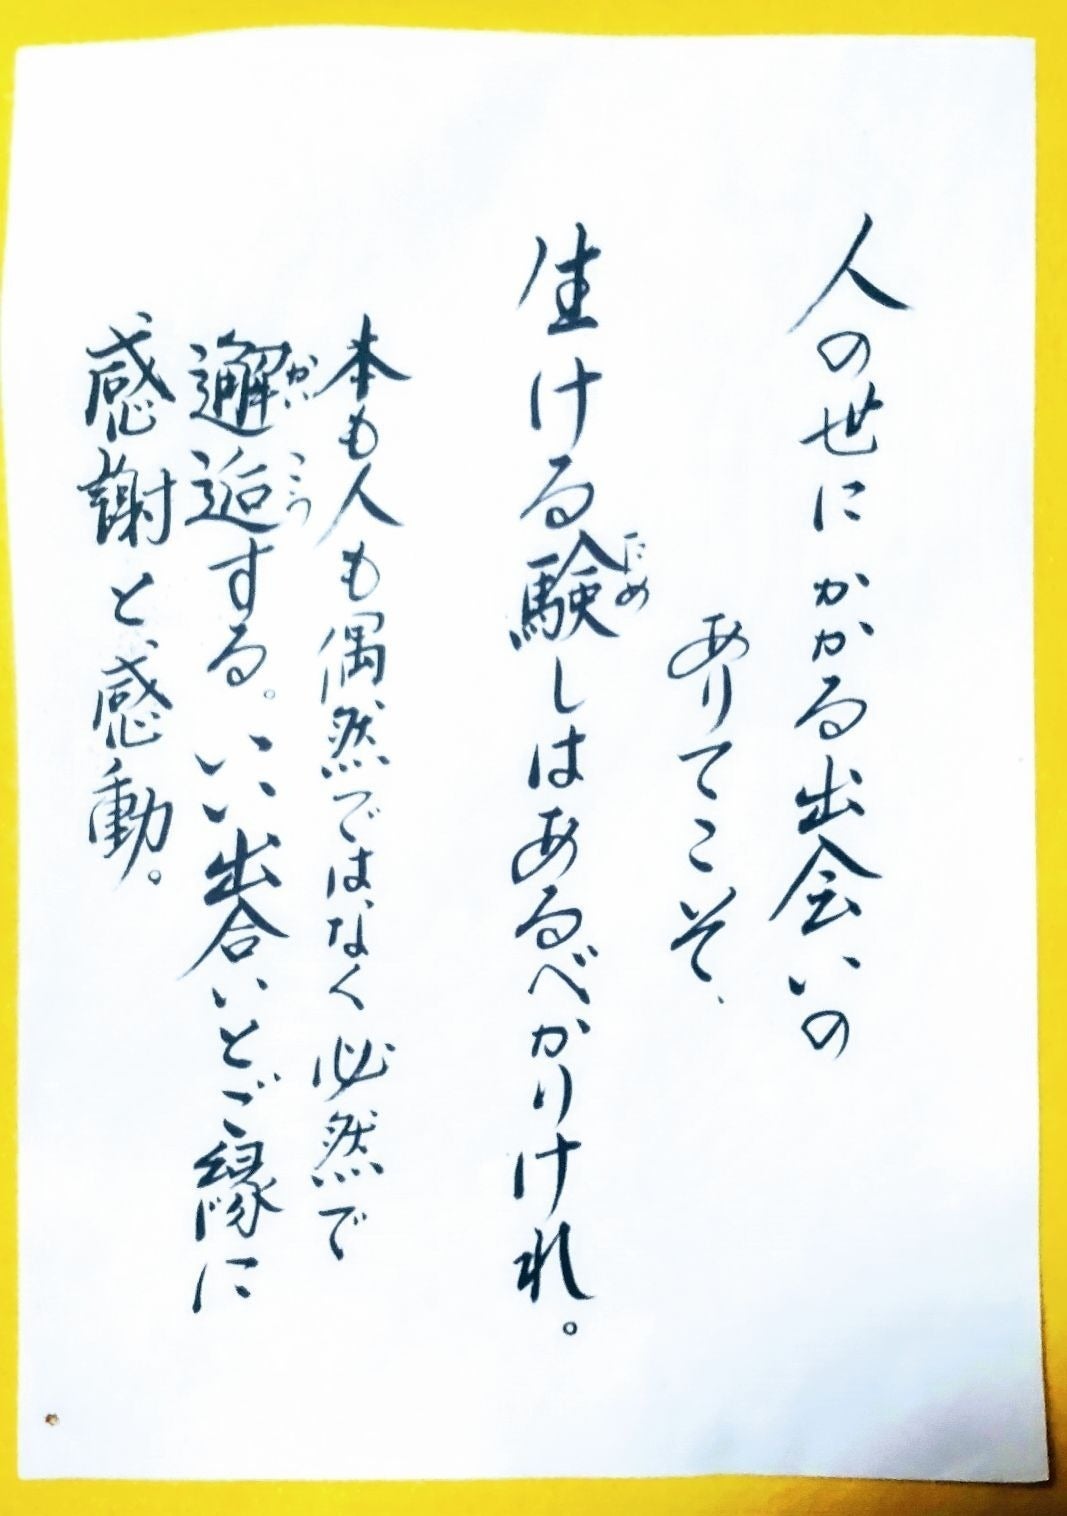 人の世にかかる出会いの
ありてこそ、
生ける験しはあるべかりけれ。
ため
本も人も偶然ではなく必然で
邂逅する。いい出合いとご縁に
かい こう
感謝と、感動。